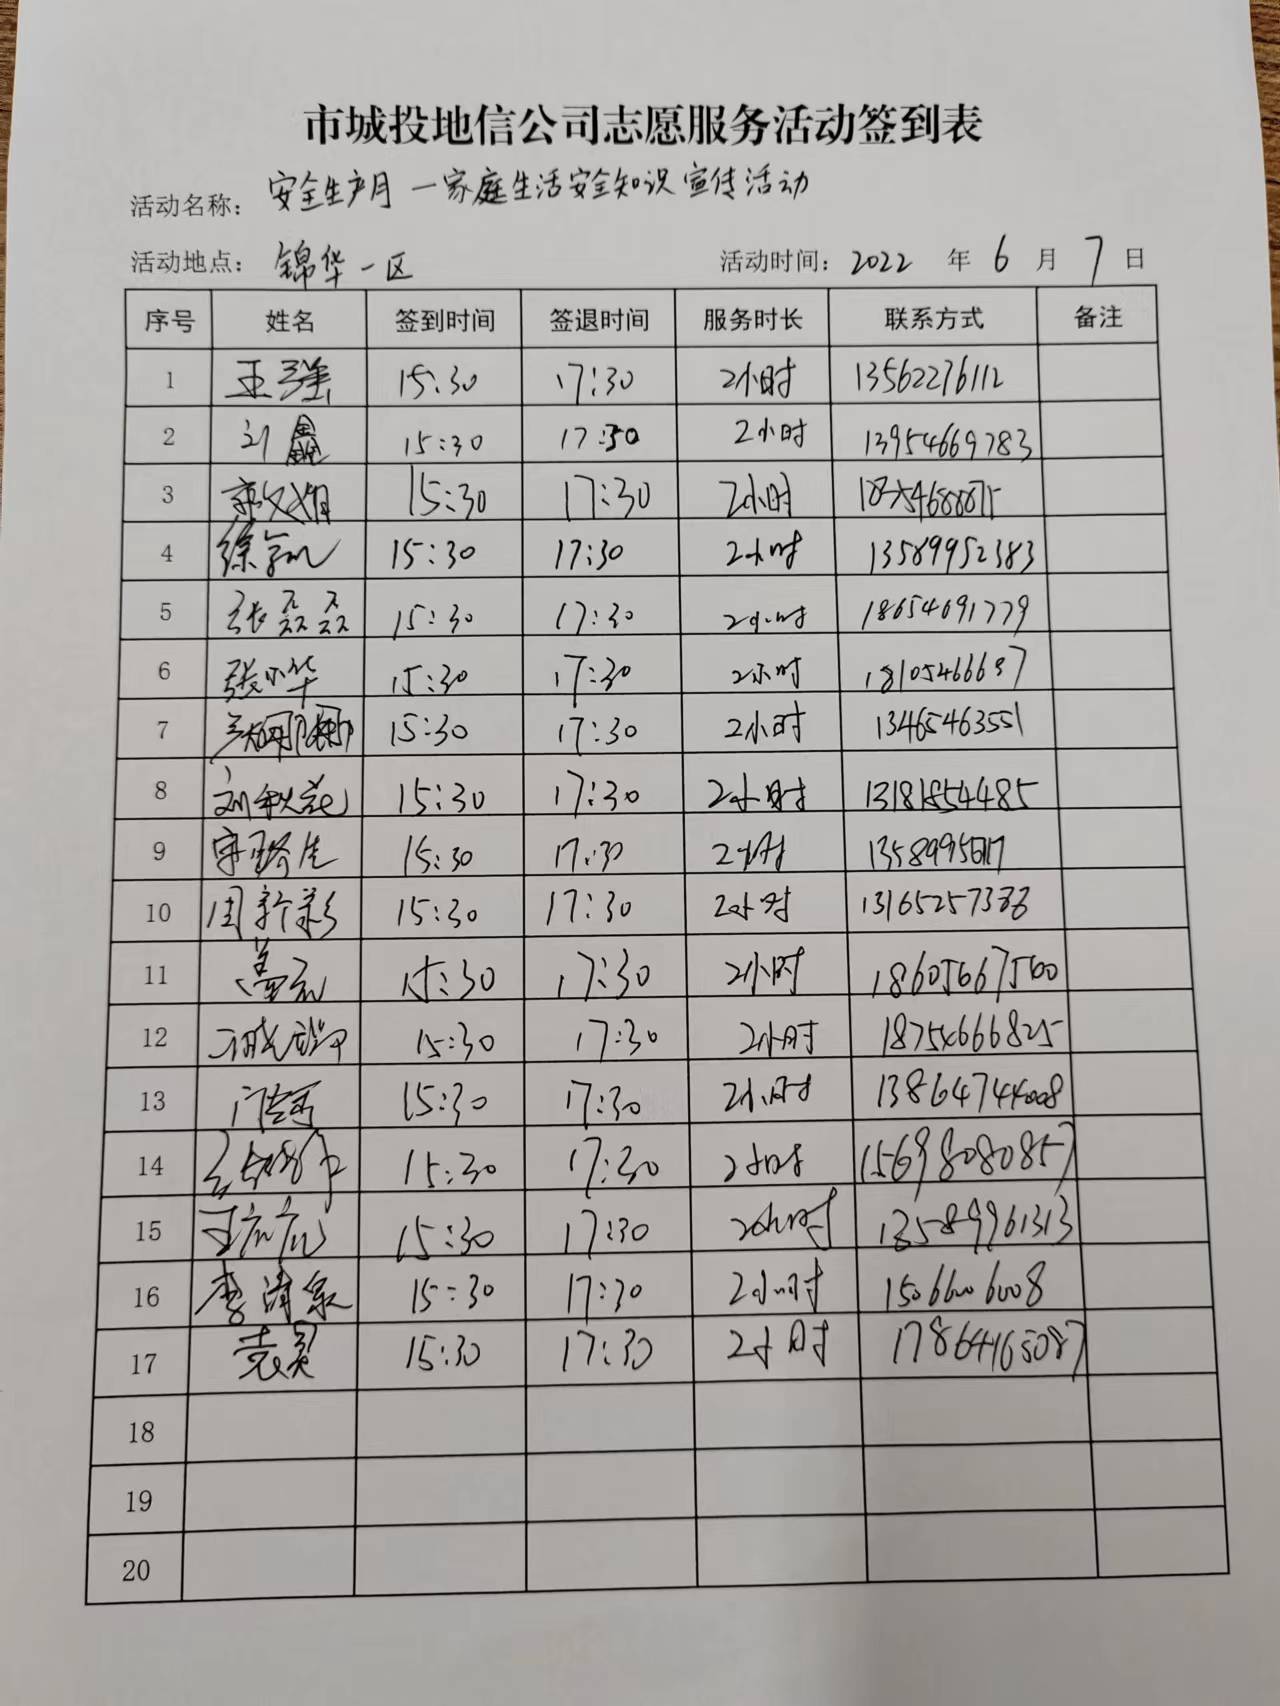 市城投地信公司志愿服务活动签到表
活动名称： 安全生产月—家庭生活安全知识宣传活动
活动地点： 锦华一区 活动时间： 2022 年 6 月 7 日
序号 姓名 签到时间 签退时间 服务时长 联系方式 备注
1 王强 15:30 17:30 2小时 13562276112
2 刘鑫 15:30 17:30 2小时 13954669783
3 15:30 17:30 2小时
4 15:30 17:30 2小时 13589952383
5 张磊磊 15:30 17:30 2小时 18654691779
6 张小华 15:30 17:30 2小时
7 15:30 17:30 2小时 13465463551
8 15:30 17:30 2小时 13181854485
9 15:30 17:30 2小时
10 周新彩 15:30 17:30 2小时
11 15:30 17:30 2小时 18605667560
12 15:30 17:30 2小时 18754666825
13 15:30 17:30 2小时 13864744008
14 15:30 17:30 2小时 15698080857
15 15:30 17:30 2小时 13589961313
16 15:30 17:30 2小时
17 袁昊 15:30 17:30 2小时 17864165087
18
19
20